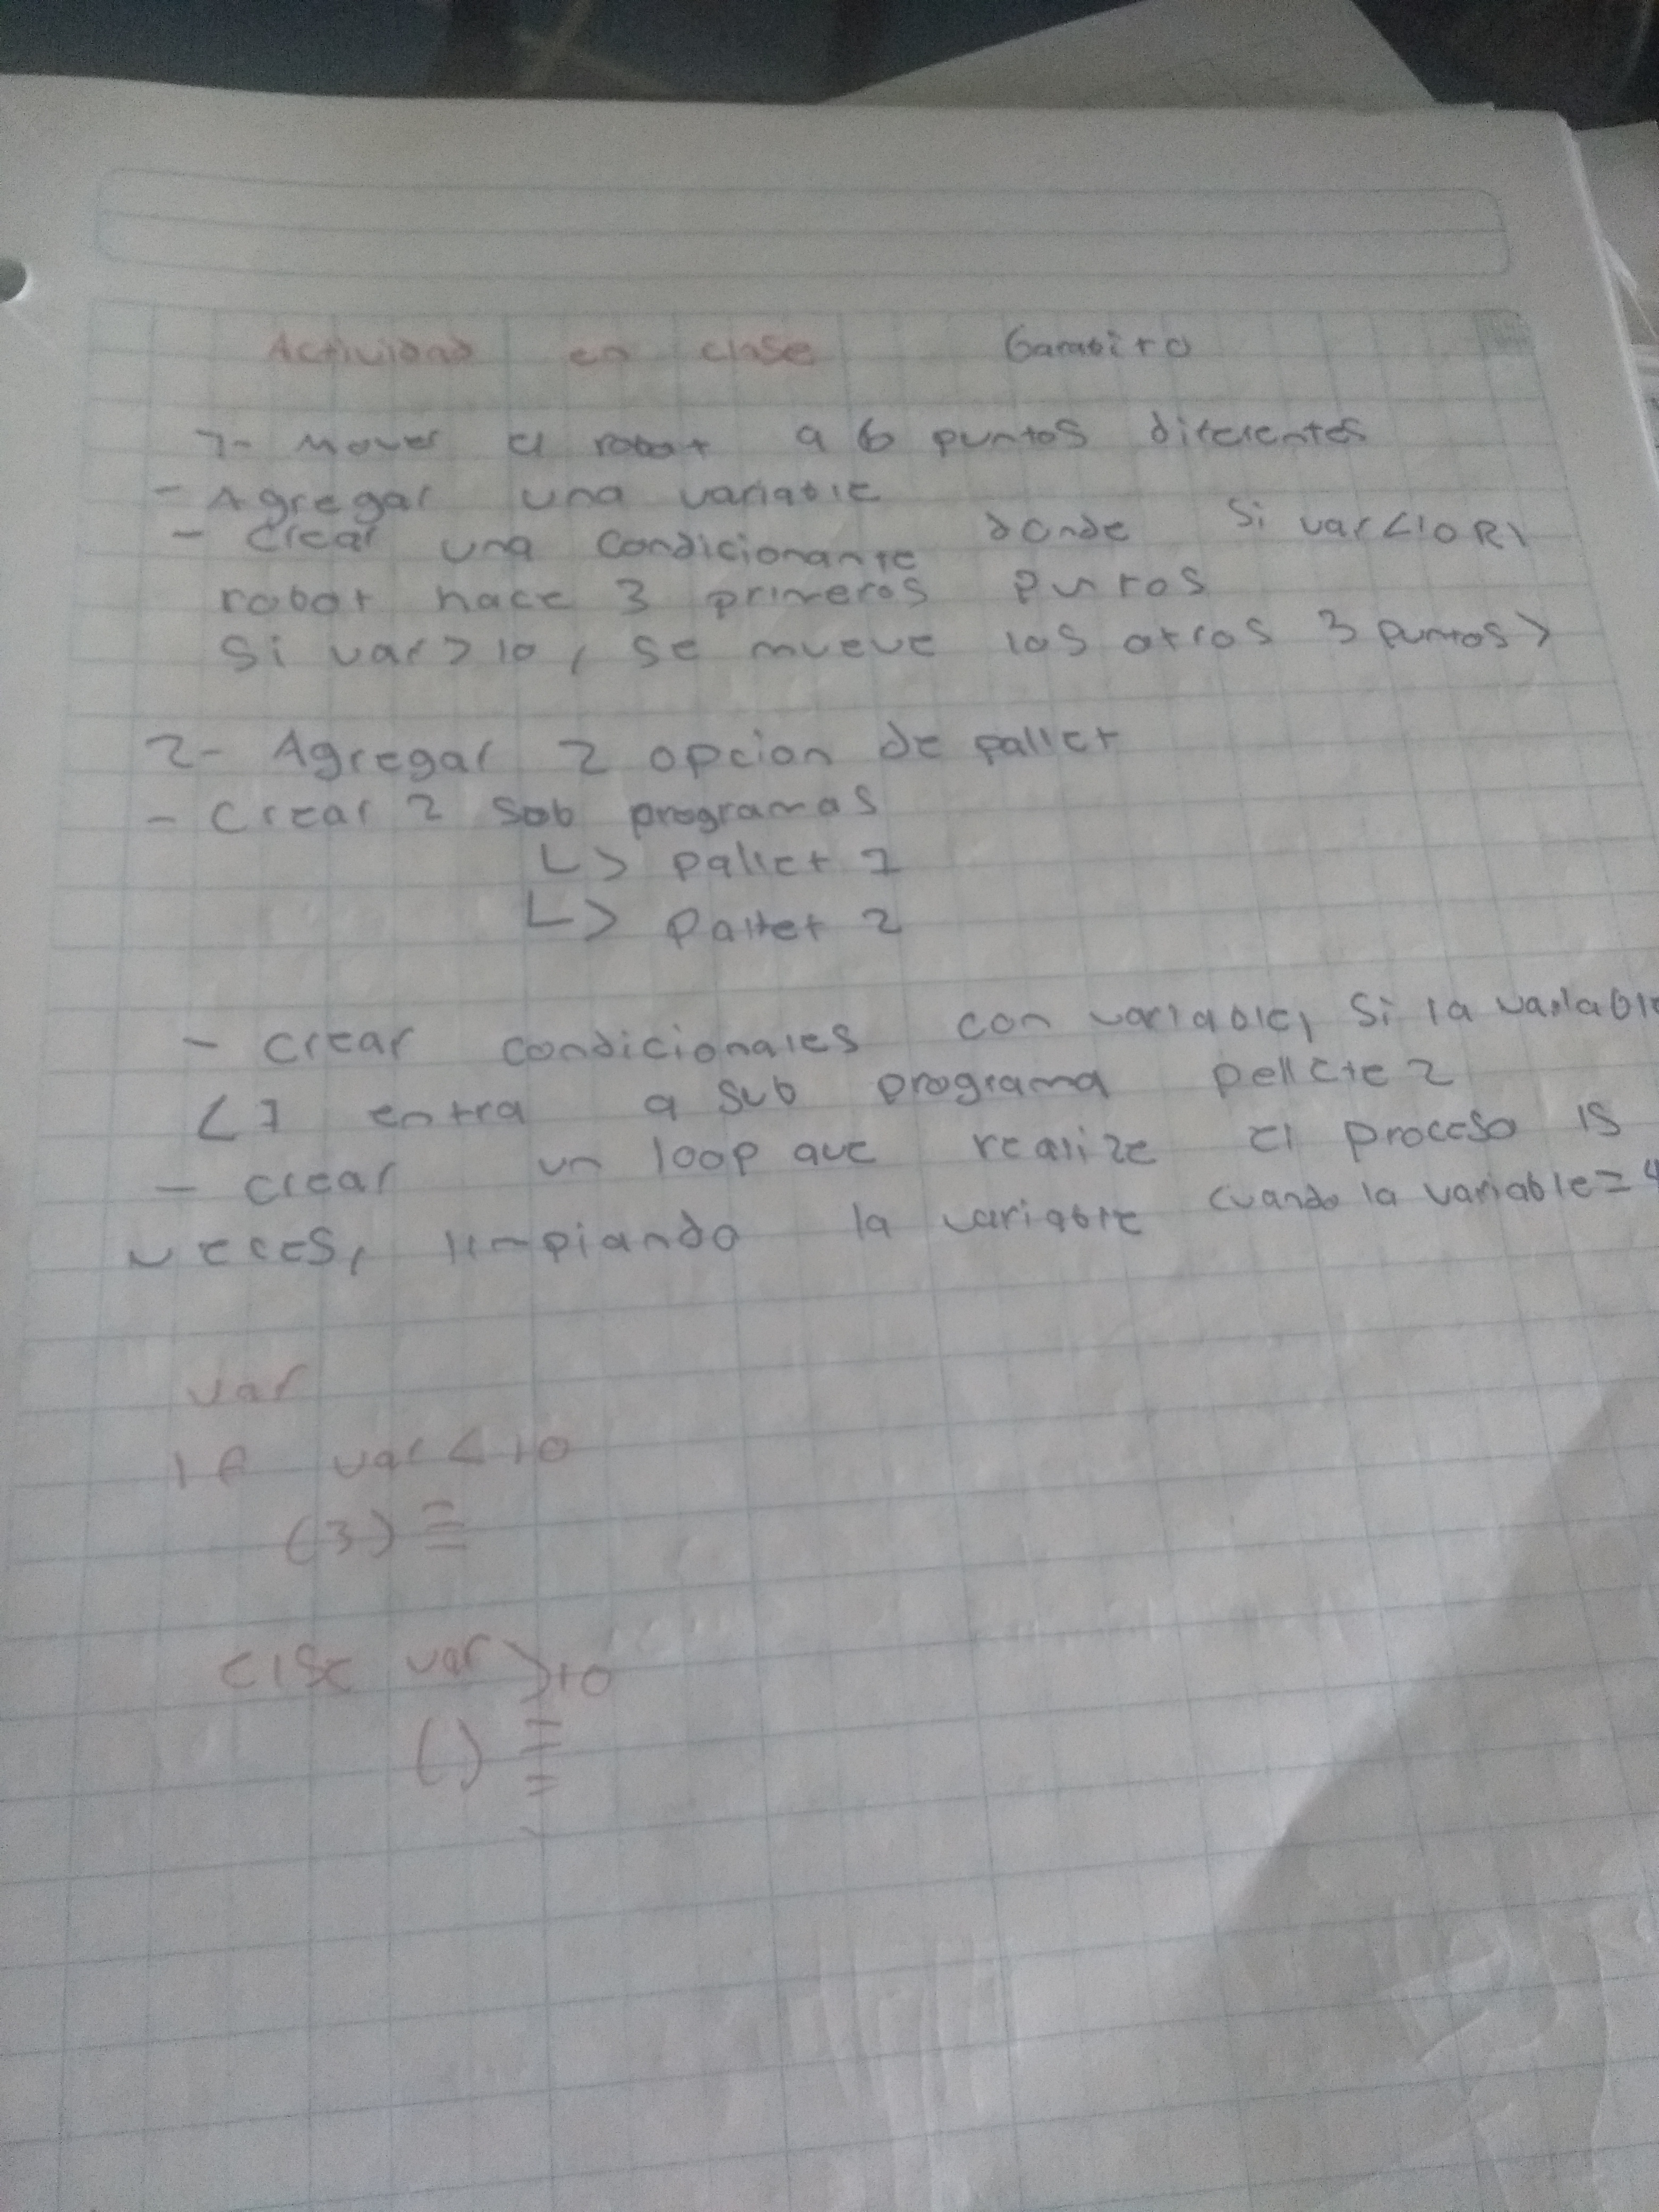 Actividad en clase Gambito
1- Mover el robot a 6 puntos diferentes
- Agregar una variable
- Crear una condicionante donde si var<10
robot hace 3 primeros puntos
Si var>10, se mueve los otros 3 puntos>
2- Agregar 2 opcion de pallet
- Crear 2 sob programas
↳> pallet 1
↳> Pallet 2
- crear condicionales con variable, Si la variable
<1 entra a sub programa pellete 2
- crear un loop que realize el proceso 15
veces, limpiando la variable cuando la variable=4
var
if var<10
(3)
else var>10
()